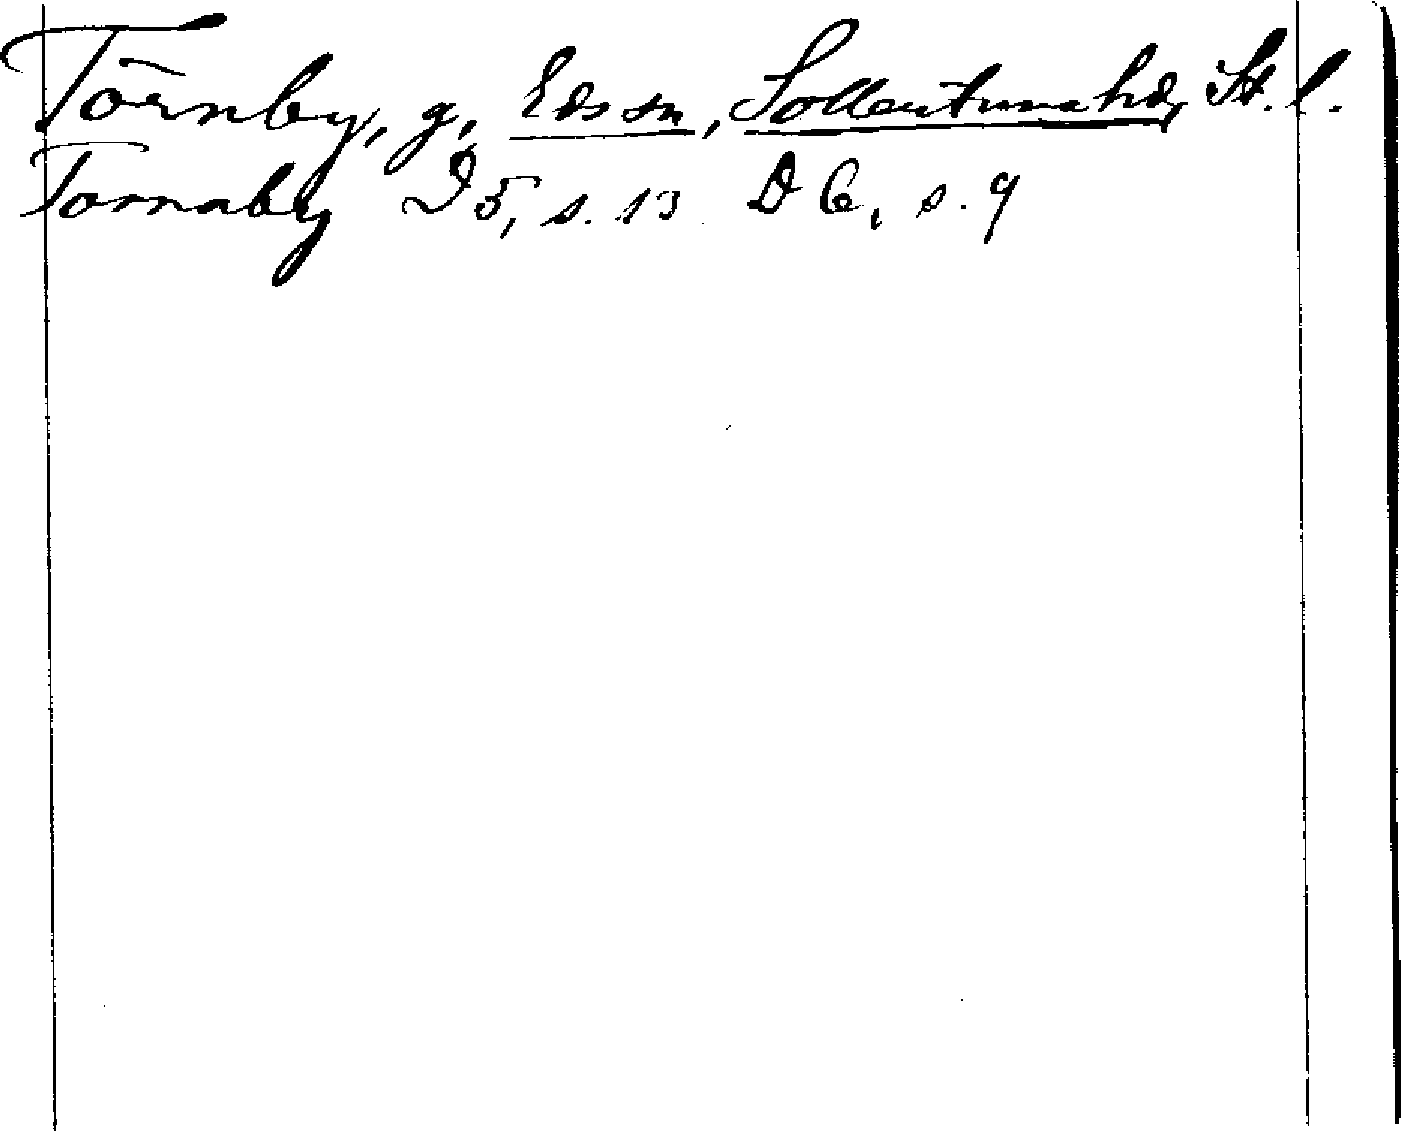 Törnby, g, Eds sn, Sollentuna hd, St. l.
Tornaby D 5, s. 13 D 6, s. 9